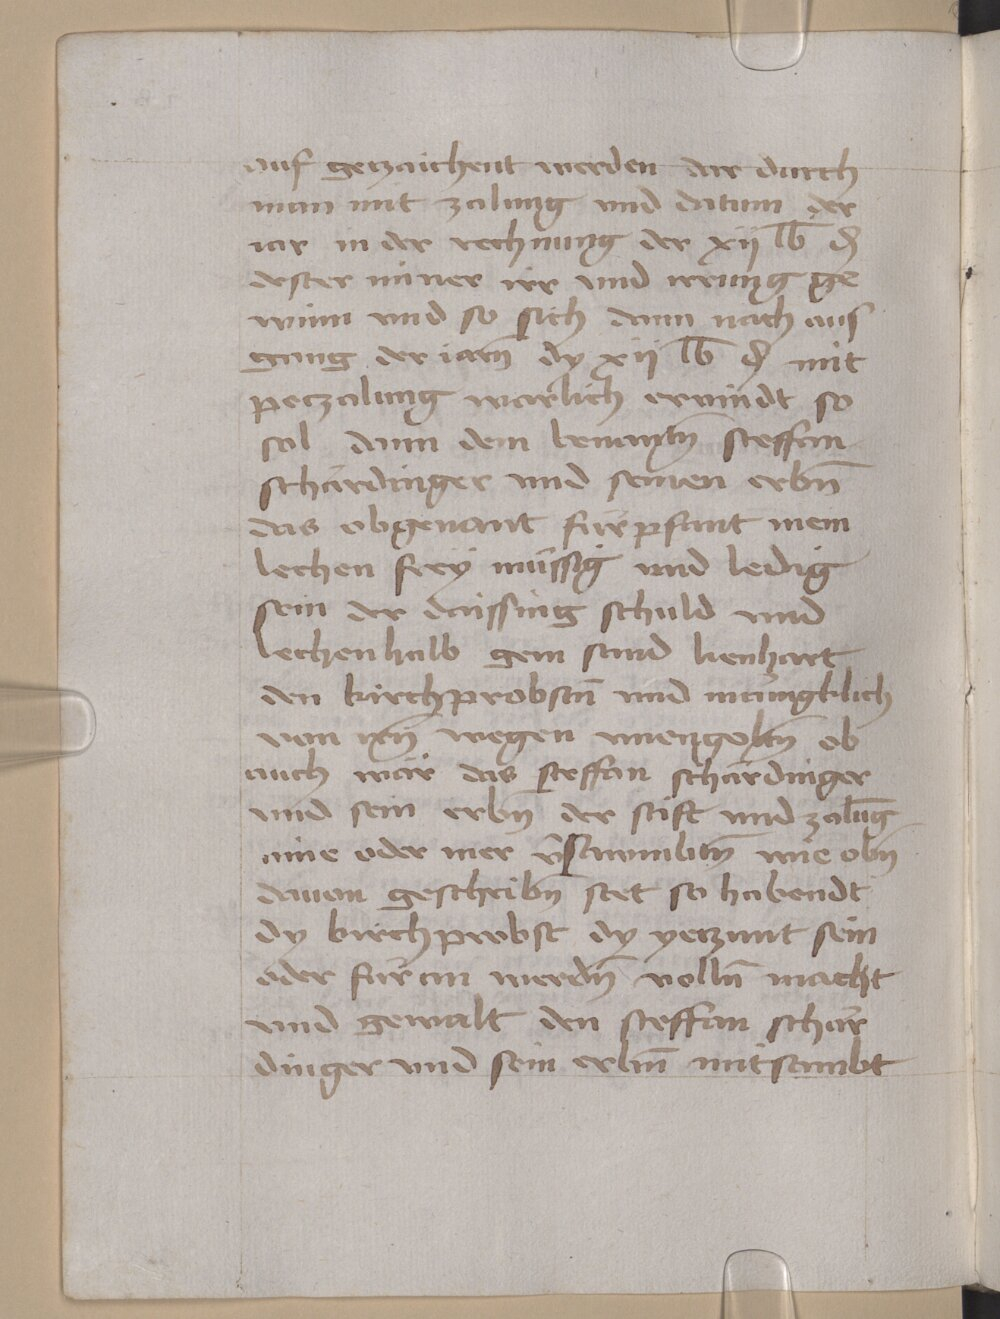 auf getzaichent werden dar durch
man mit zalung vnd datum der
iar in der rechnung der xij lb d
dester miner irr vnd irrung ge
winn vnd so sich dann nach aus
gang der iarn̄ dy xij lb d mit
peczalung warlich erwindt so
sol dann dem benantn̄ steffan
schärdinger vnd seinen erbn̄
das obgenant fürpfant mein
lechen frey müssig vnd ledig
sein der dreissing schuld vnd
lechenhalb gem sand lienhart
den kirchprobstn̄ vnd mäingklich
von irn̄ wegen vnengoltn̄ ob
auch wär das steffan schärdinger
vnd sein erbn̄ der stift vnd zalūg
aine oder mer v̄sawmbtn̄ wie obn̄
dauon geschribn̄ stet so habendt
dy kirchprobst dy yeczunt sein
oder füran werdn̄ volln̄ macht
vnd gewalt den steffan schär
dinger vnd sein erbn̄ mitsambt